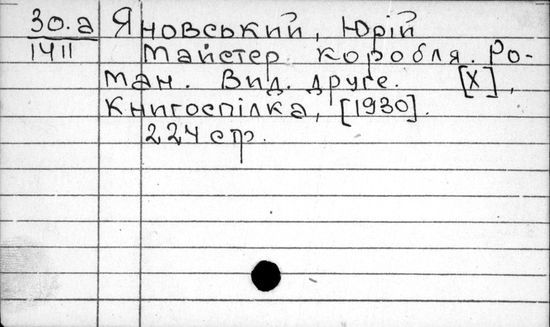 30.а Яновський, Юрій
1411 Майстер корабля. Ро-
ман. Вид. друге. [Х],
Книгоспілка, [1930].
224 стр.